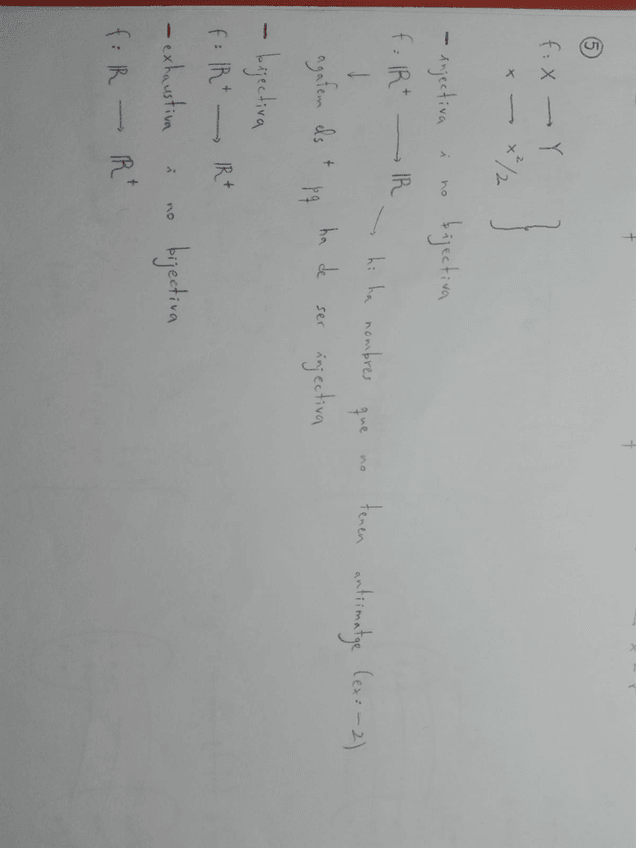 ⑤
f: X → Y
x → x²/2 }
- injectiva i no bijectiva
f: ℝ⁺ → ℝ → hi ha nombres que no tenen antiimatge (ex: -2)
↓
agafem els + pq ha de ser injectiva
- bijectiva
f: ℝ⁺ → ℝ⁺
- exhaustiva i no bijectiva
f: ℝ → ℝ⁺